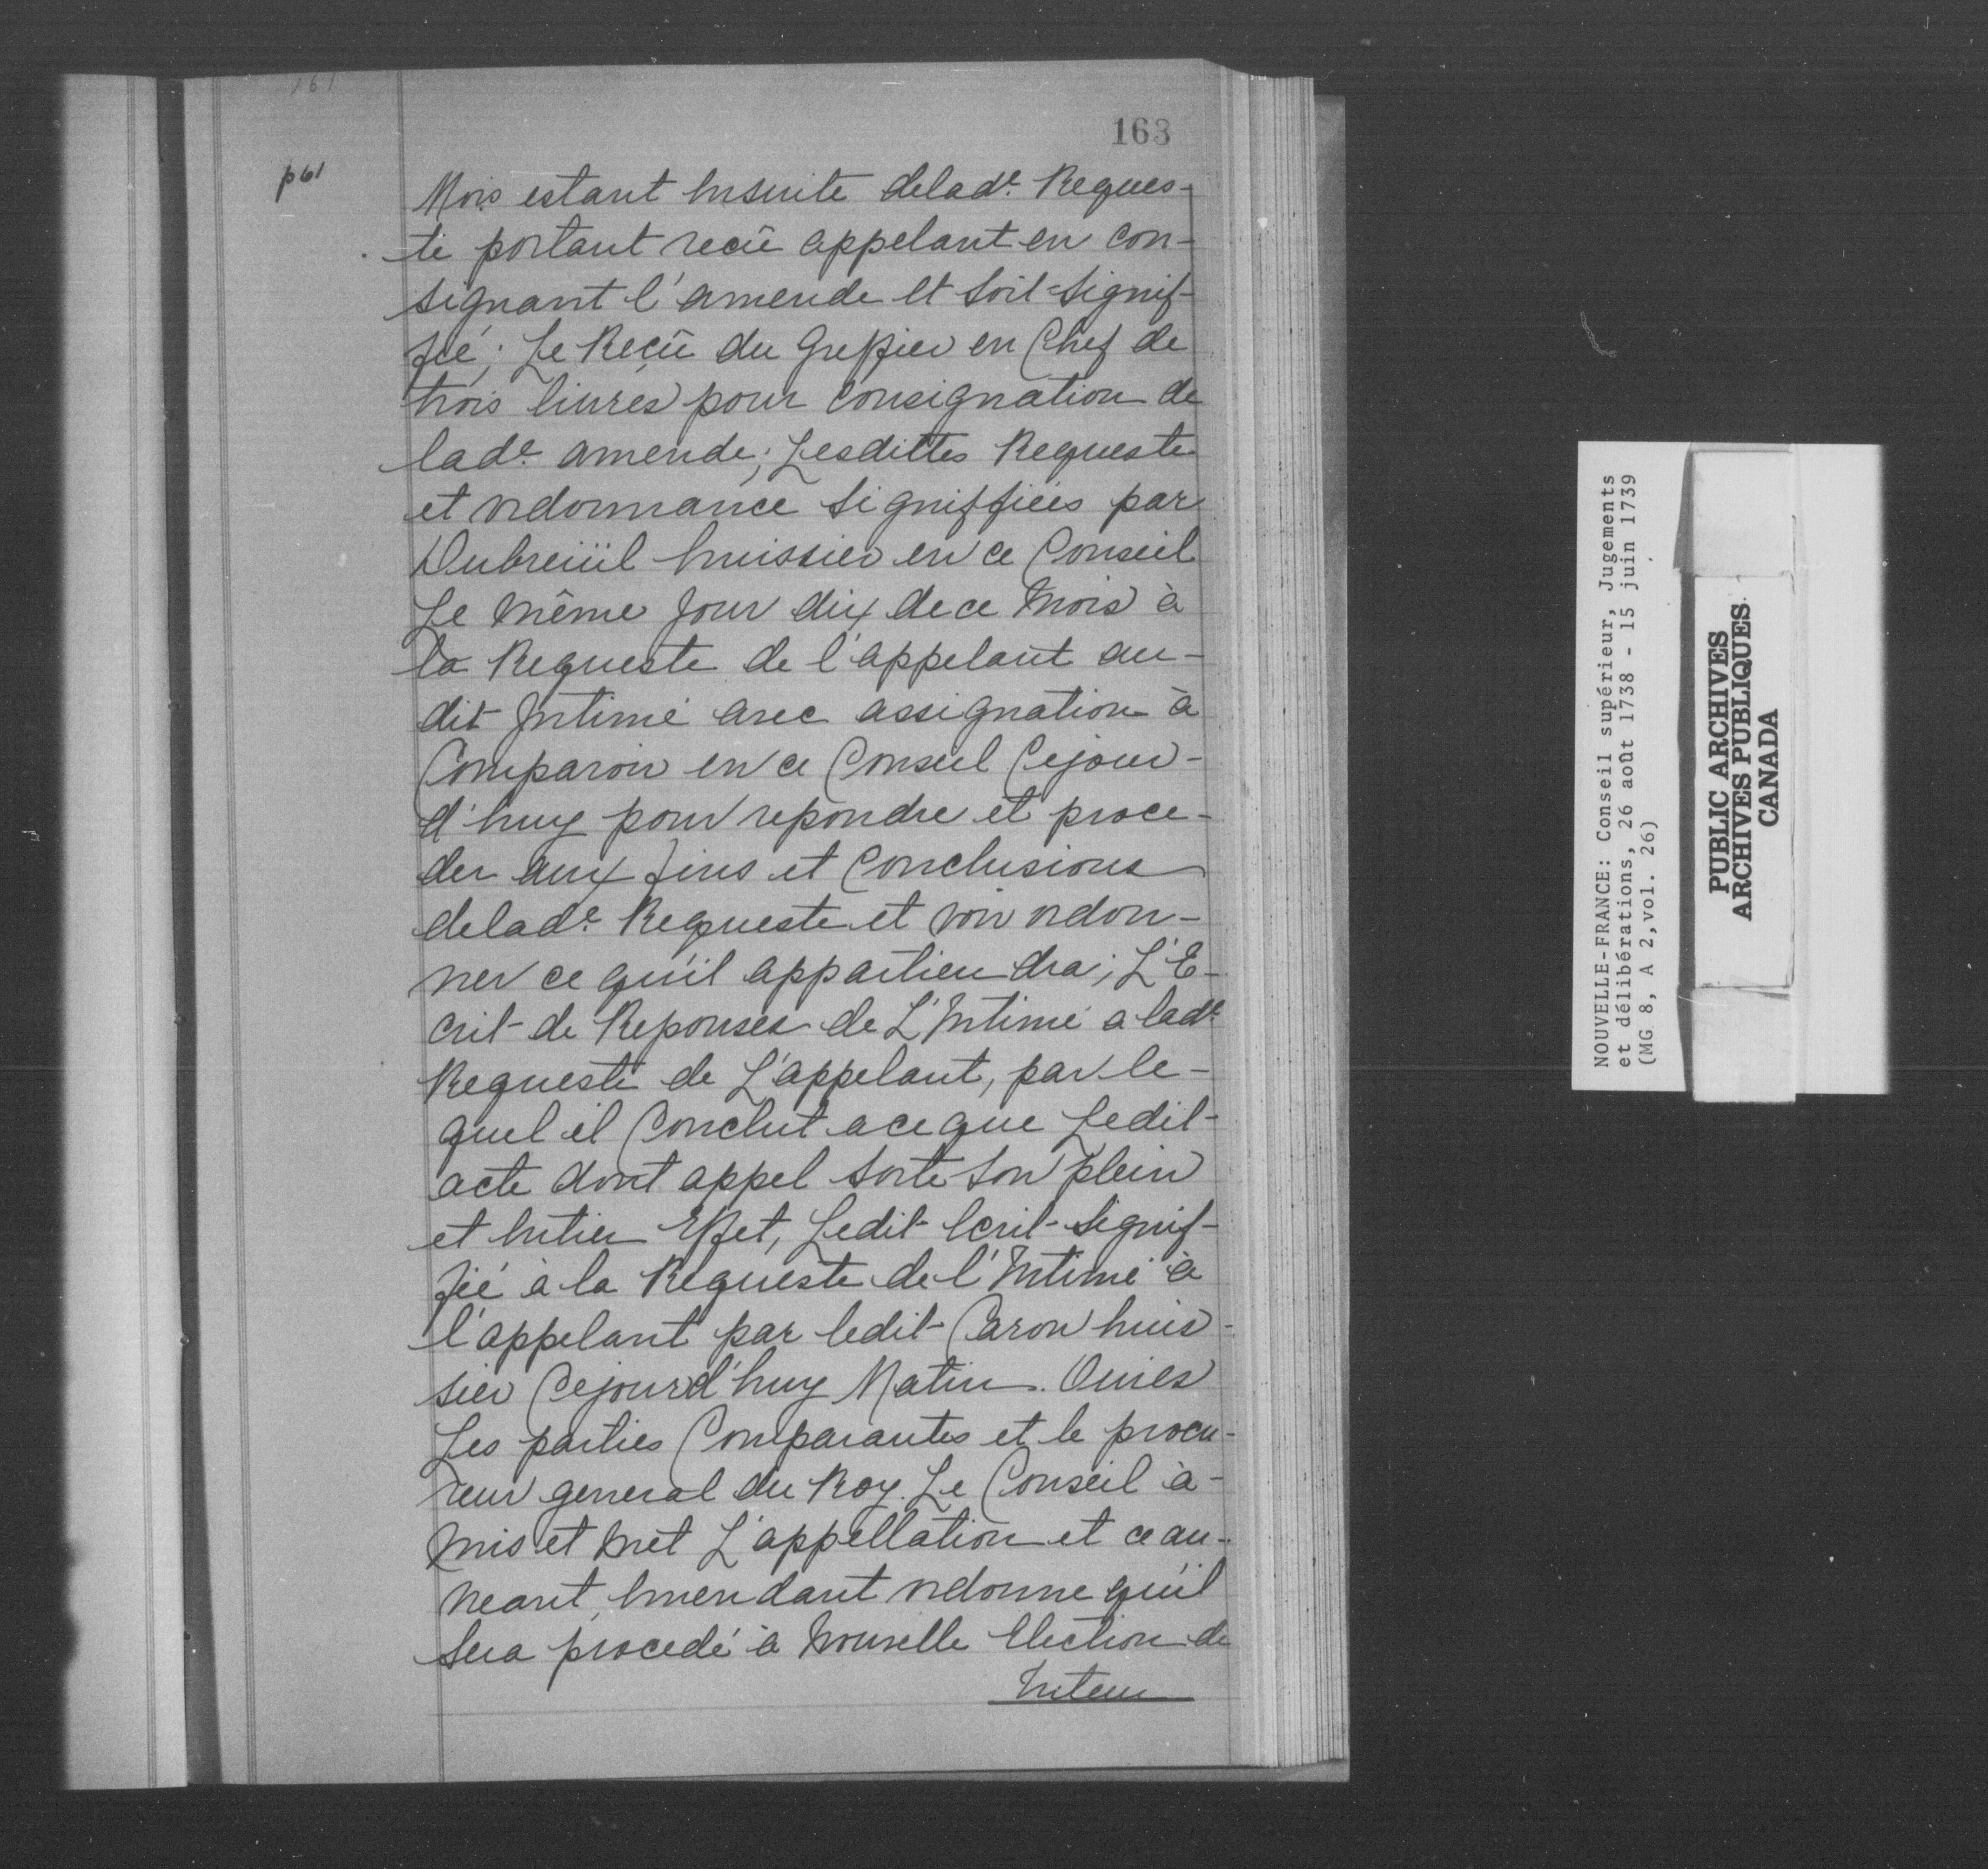 161
163
p61
Mois estant Ensuite delad.e Reques-
te portant recû appelant en con-
signant l'amende et Soit-Signif-
fié; Le Reçû du Greffier en Chef de
trois livres pour consignation de
lad.e amende; Lesdittes Requeste
et ordonnance Signiffiées par
Dubreüil huissier en ce Conseil
Le même Jour dix de ce Mois à
la Requeste de l'appelant au-
dit Intimé avec assignation à
Comparoir en ce Conseil Cejour-
d'huy pour repondre et proce-
der aux fins et Conclusions
delad.e Requeste et voir ordon-
ner ce qu'il appartiendra; L'E-
crit de Reponses de L'Intimé a lad.e
Requeste de L'appelant, par le-
quel il Conclut a ce que Ledit
acte dont appel Sorte Son plein
et Entier Effet, Ledit Ecrit Signif-
fié à la Requeste de l'Intimé à
l'appelant par ledit Caron huis-
sier Cejourd'huy Matin. Ouies
Les parties Comparantes et le procu-
reur general du Roy. Le Conseil à
Mis et Met L'appellation et ce au-
neant, Emendant ordonne qu'il
Sera procedé à Nouvelle Election de
Tuteur
NOUVELLE-FRANCE: Conseil supérieur, Jugements
et délibérations, 26 août 1738 - 15 juin 1739
(MG 8, A 2, vol. 26)
PUBLIC ARCHIVES
ARCHIVES PUBLIQUES
CANADA